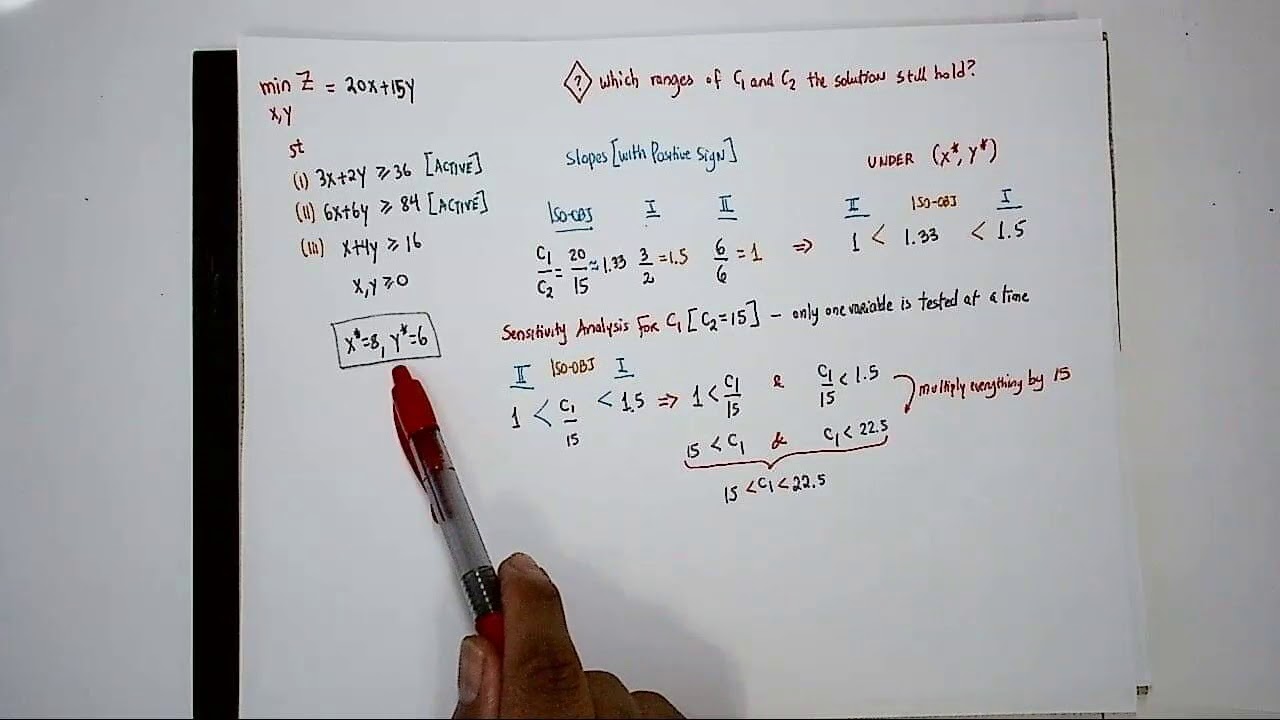 min Z = 20x+15y
x,y
st
(i) 3x+2y ≥ 36 [ACTIVE]
(ii) 6x+6y ≥ 84 [ACTIVE]
(iii) x+4y ≥ 16
x,y ≥ 0
x*=8, y*=6
? Which ranges of C₁ and C₂ the solution still hold?
Slopes [with Positive Sign]
ISO-OBJ I II
C₁/C₂ = 20/15 ≈ 1.33 3/2 = 1.5 6/6 = 1 ⇒
UNDER (x*, y*)
II ISO-OBJ I
1 < 1.33 < 1.5
Sensitivity Analysis for C₁ [C₂=15] - only one variable is tested at a time
II ISO-OBJ I
1 < C₁/15 < 1.5 ⇒ 1 < C₁/15 & C₁/15 < 1.5
multiply everything by 15
15 < C₁ & C₁ < 22.5
15 < C₁ < 22.5